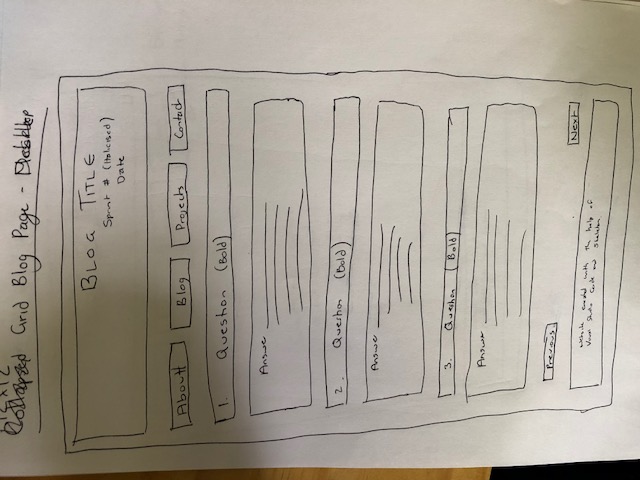 12x12
Grid Blog Page - Desktop
BLOG TITLE
Sprint # (Italicised)
Date
About
Blog
Projects
Contact
1. Question (Bold)
Answer
2. Question (Bold)
Answer
3. Question (Bold)
Answer
Previous
Next
Website created with the help of
Visual Studio Code and Skeleton